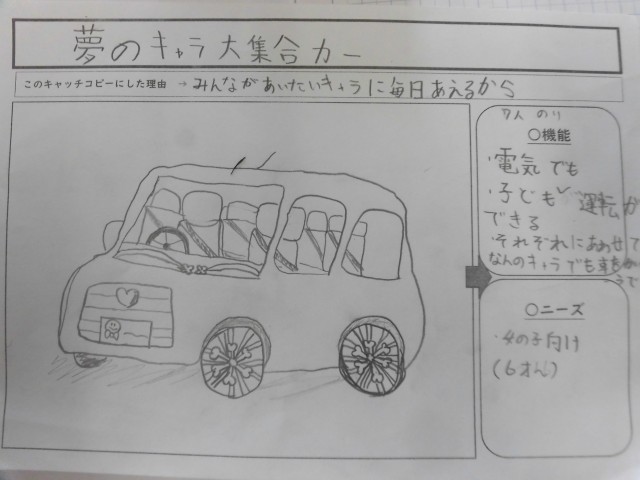 夢のキャラ大集合カー
このキャッチコピーにした理由 → みんながあいたいキャラに毎日あえるから
7人 のり
○機能
・電気でも
・子ども 運転が
できる
・それぞれにあわせて
なんのキャラでも
○ニーズ
・女の子向け
(6才)